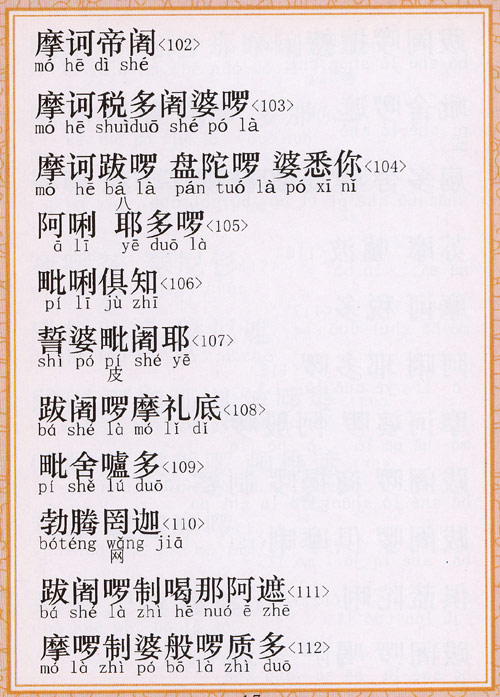 摩诃帝阇<102>
mó hē dì shé
摩诃税多阇婆啰<103>
mó hē shuìduō shé pó là
摩诃跋啰 盘陀啰 婆悉你<104>
mó hē bá là pán tuó là pó xī nǐ
八
阿唎 耶多啰<105>
ā lī yē duō là
毗唎俱知<106>
pí lī jù zhī
誓婆毗阇耶<107>
shì pó pí shé yē
皮
跋阇啰摩礼底<108>
bá shé là mó lǐ dǐ
毗舍嚧多<109>
pí shě lú duō
勃腾罔迦<110>
bóténg wǎng jiā
网
跋阇啰制喝那阿遮<111>
bá shé là zhì hē nuó ē zhē
摩啰制婆般啰质多<112>
mó là zhì pó bō là zhì duō